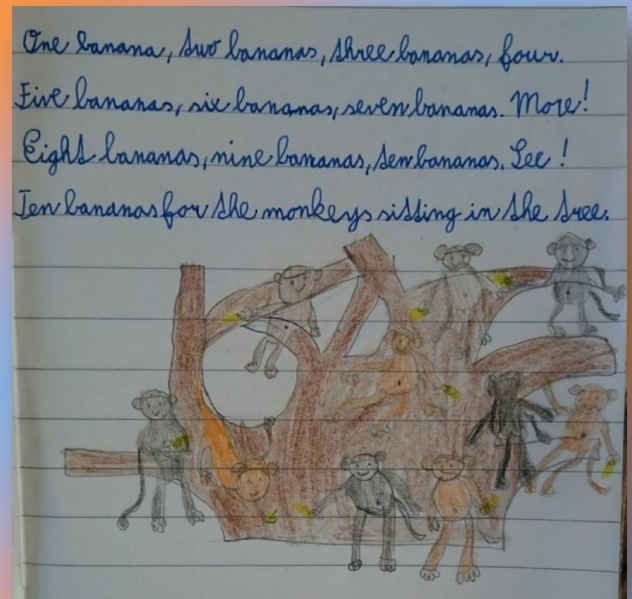 One banana, two bananas, three bananas, four.
Five bananas, six bananas, seven bananas. More!
Eight bananas, nine bananas, ten bananas. See!
Ten bananas for the monkeys sitting in the tree.